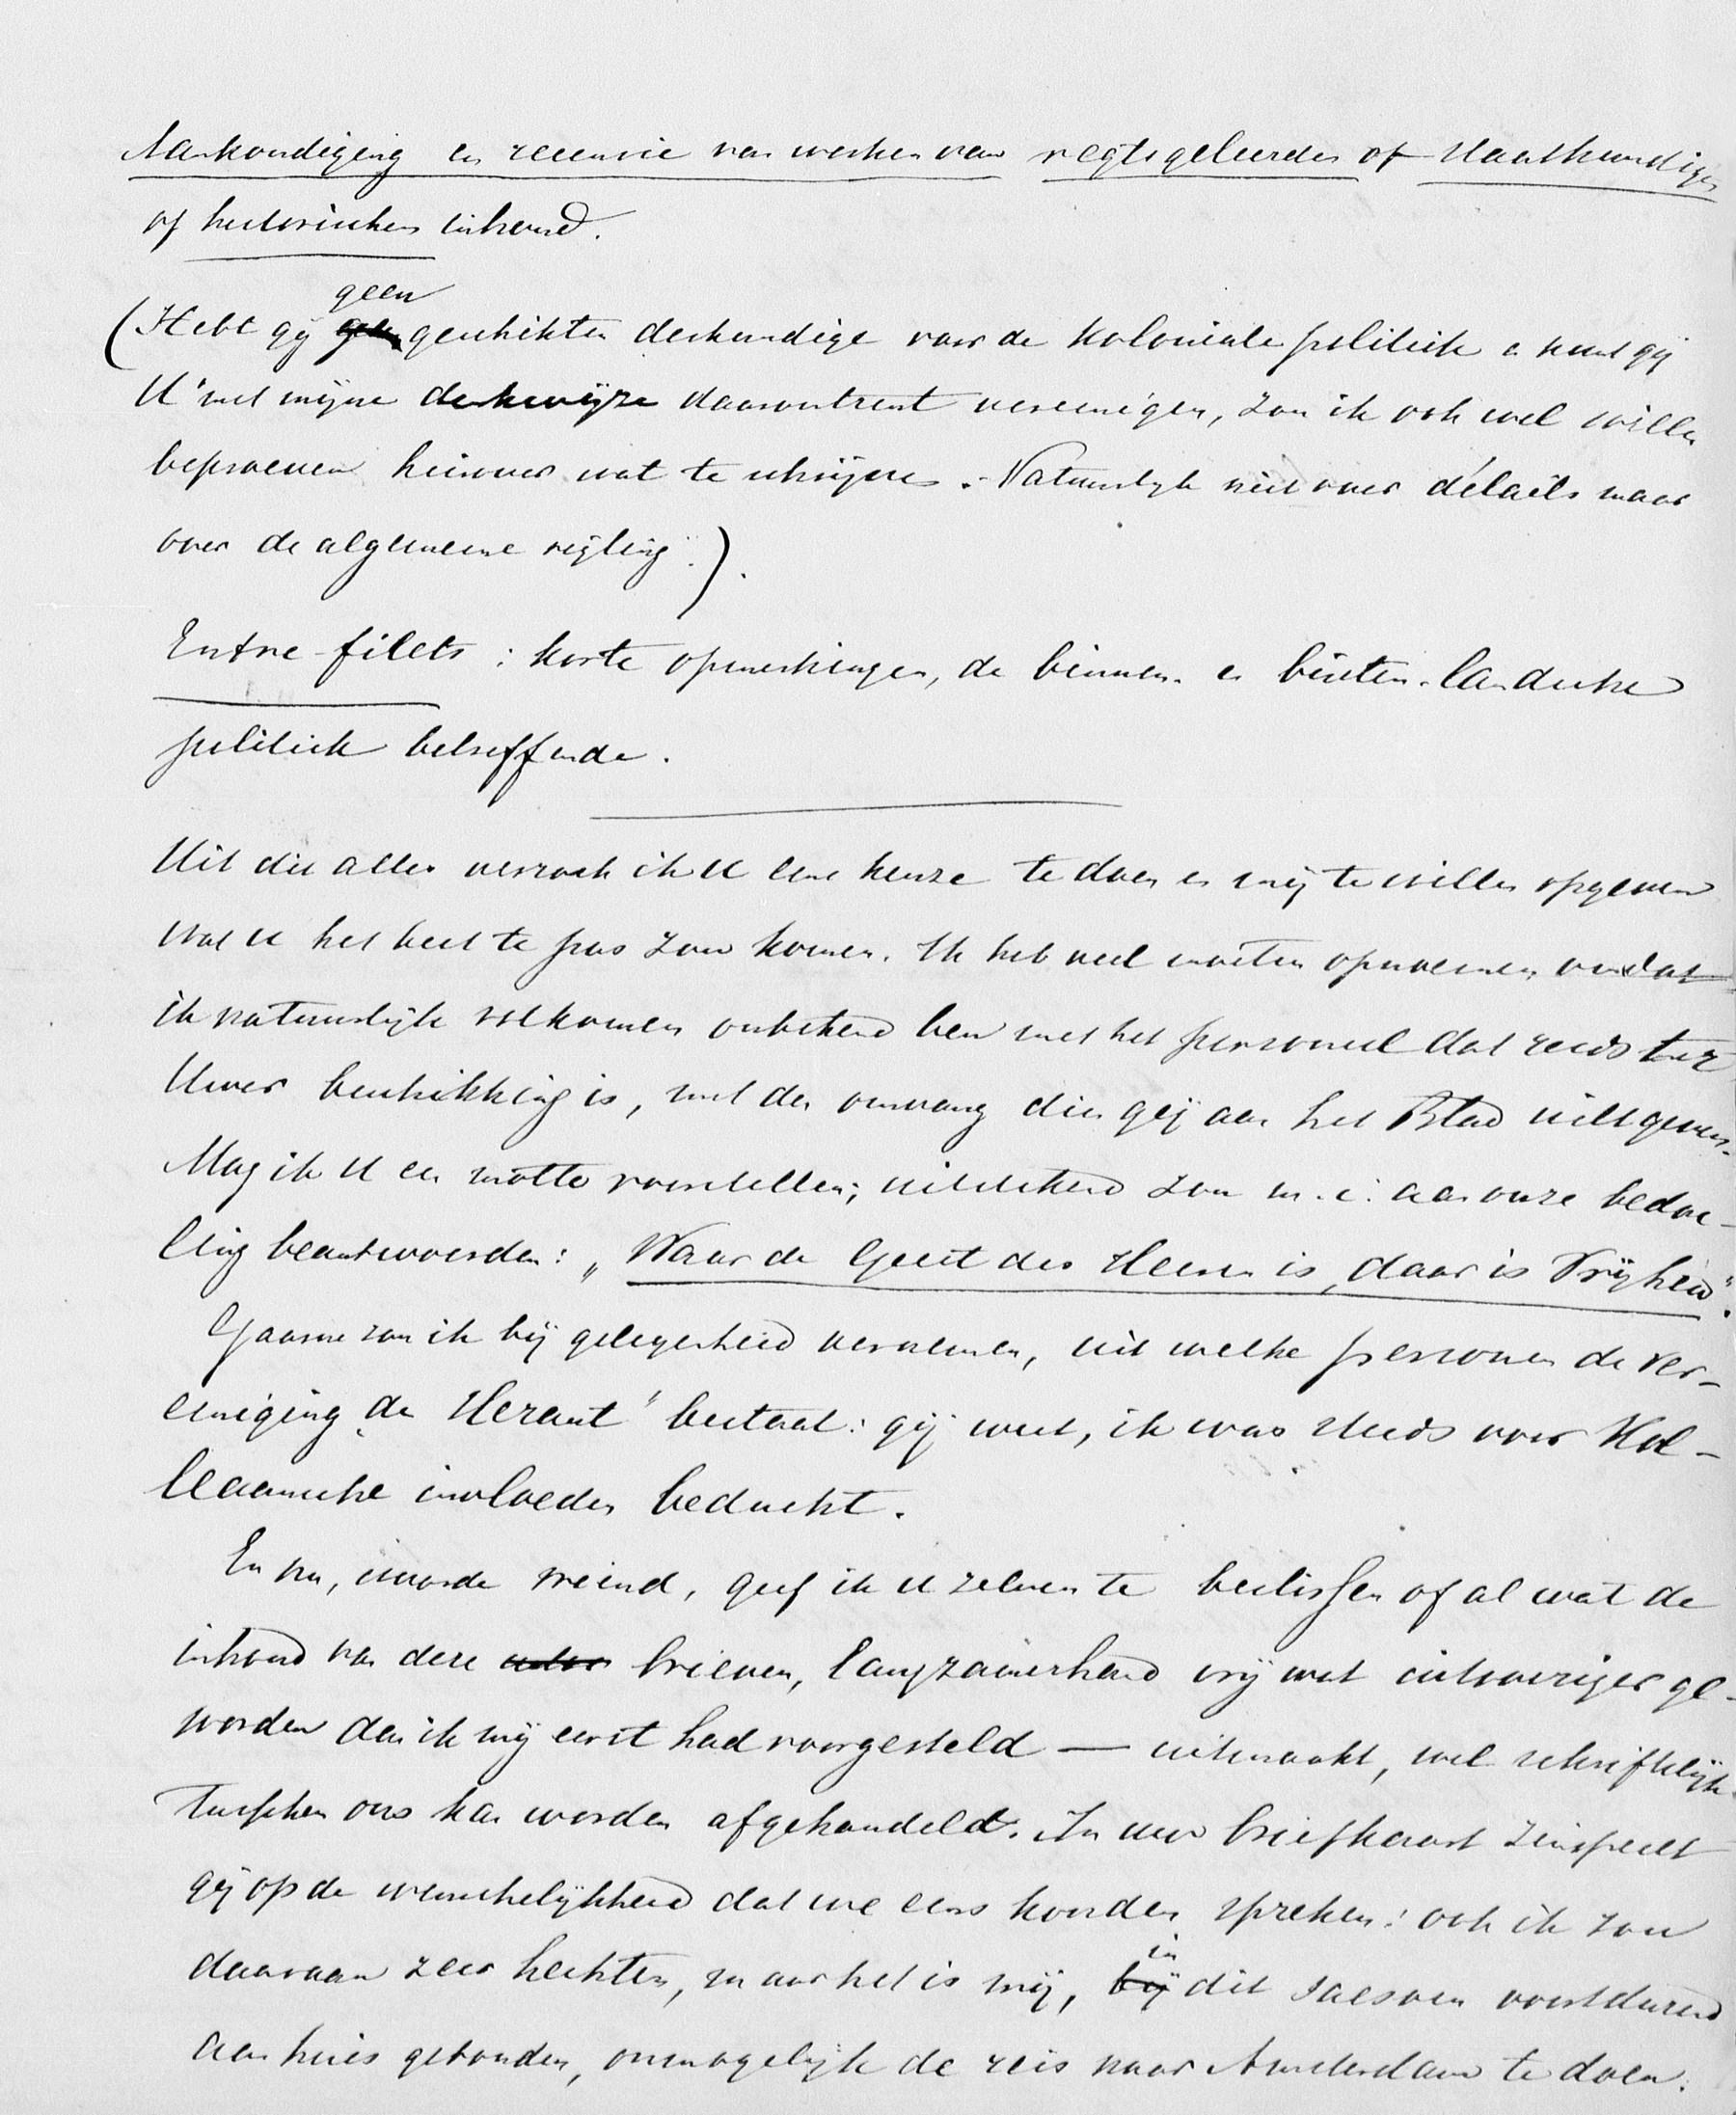 Aankondiging en recensie van werken van regtsgeleerden of staatkundigen
of historischen inhoud.
(Hebt gij geen geschikten deskundige voor de koloniale politiek en kunt gij
U met mijne denkwijze daaromtrent vereenigen, zou ik ook wel willen
beproeven hierover wat te schrijven. Natuurlyk niet over détails maar
over de algemeene regeling.).
Entre-filets: korte opmerkingen, de binnen- en buiten-landsche
politiek betreffende.
Uit dit alles verzoek ik U eene keuze te doen en mij te willen opgeven
wat U het best te pas zou komen. Ik heb veel moeten opnoemen omdat
ik natuurlijk volkomen onbekend ben met het personeel dat reeds ter
Uwer beschikking is, met den omvang dien gij aan het Blad wilt geven.
Mag ik U een motto voorstellen; uitstekend zou m.i. aan onze bedoe-
ling beantwoorden: „Waar de Geest des Heeren is, daar is Vrijheid".
Gaarne zou ik bij gelegenheid vernemen, uit welke personen de ver-
eeniging „de Heraut" bestaat: gij weet, ik was steeds voor Kol-
leaansche invloeden beducht.
En nu, waarde vriend, geef ik U zelven te beslissen of al wat de
inhoud van deze brieven, langzamerhand vrij wat uitvoeriger ge-
worden dan ik mij eerst had voorgesteld — uitmaakt, wel schriftelijk
tusschen ons kan worden afgehandeld. In uw briefkaart zinspeelt
gij op de wenschelijkheid dat we eens konden spreken: ook ik zou
daaraan zeer hechten, maar het is mij, in dit saesoen voortdurend
aan huis gebonden, onmogelijk de reis naar Amsterdam te doen.